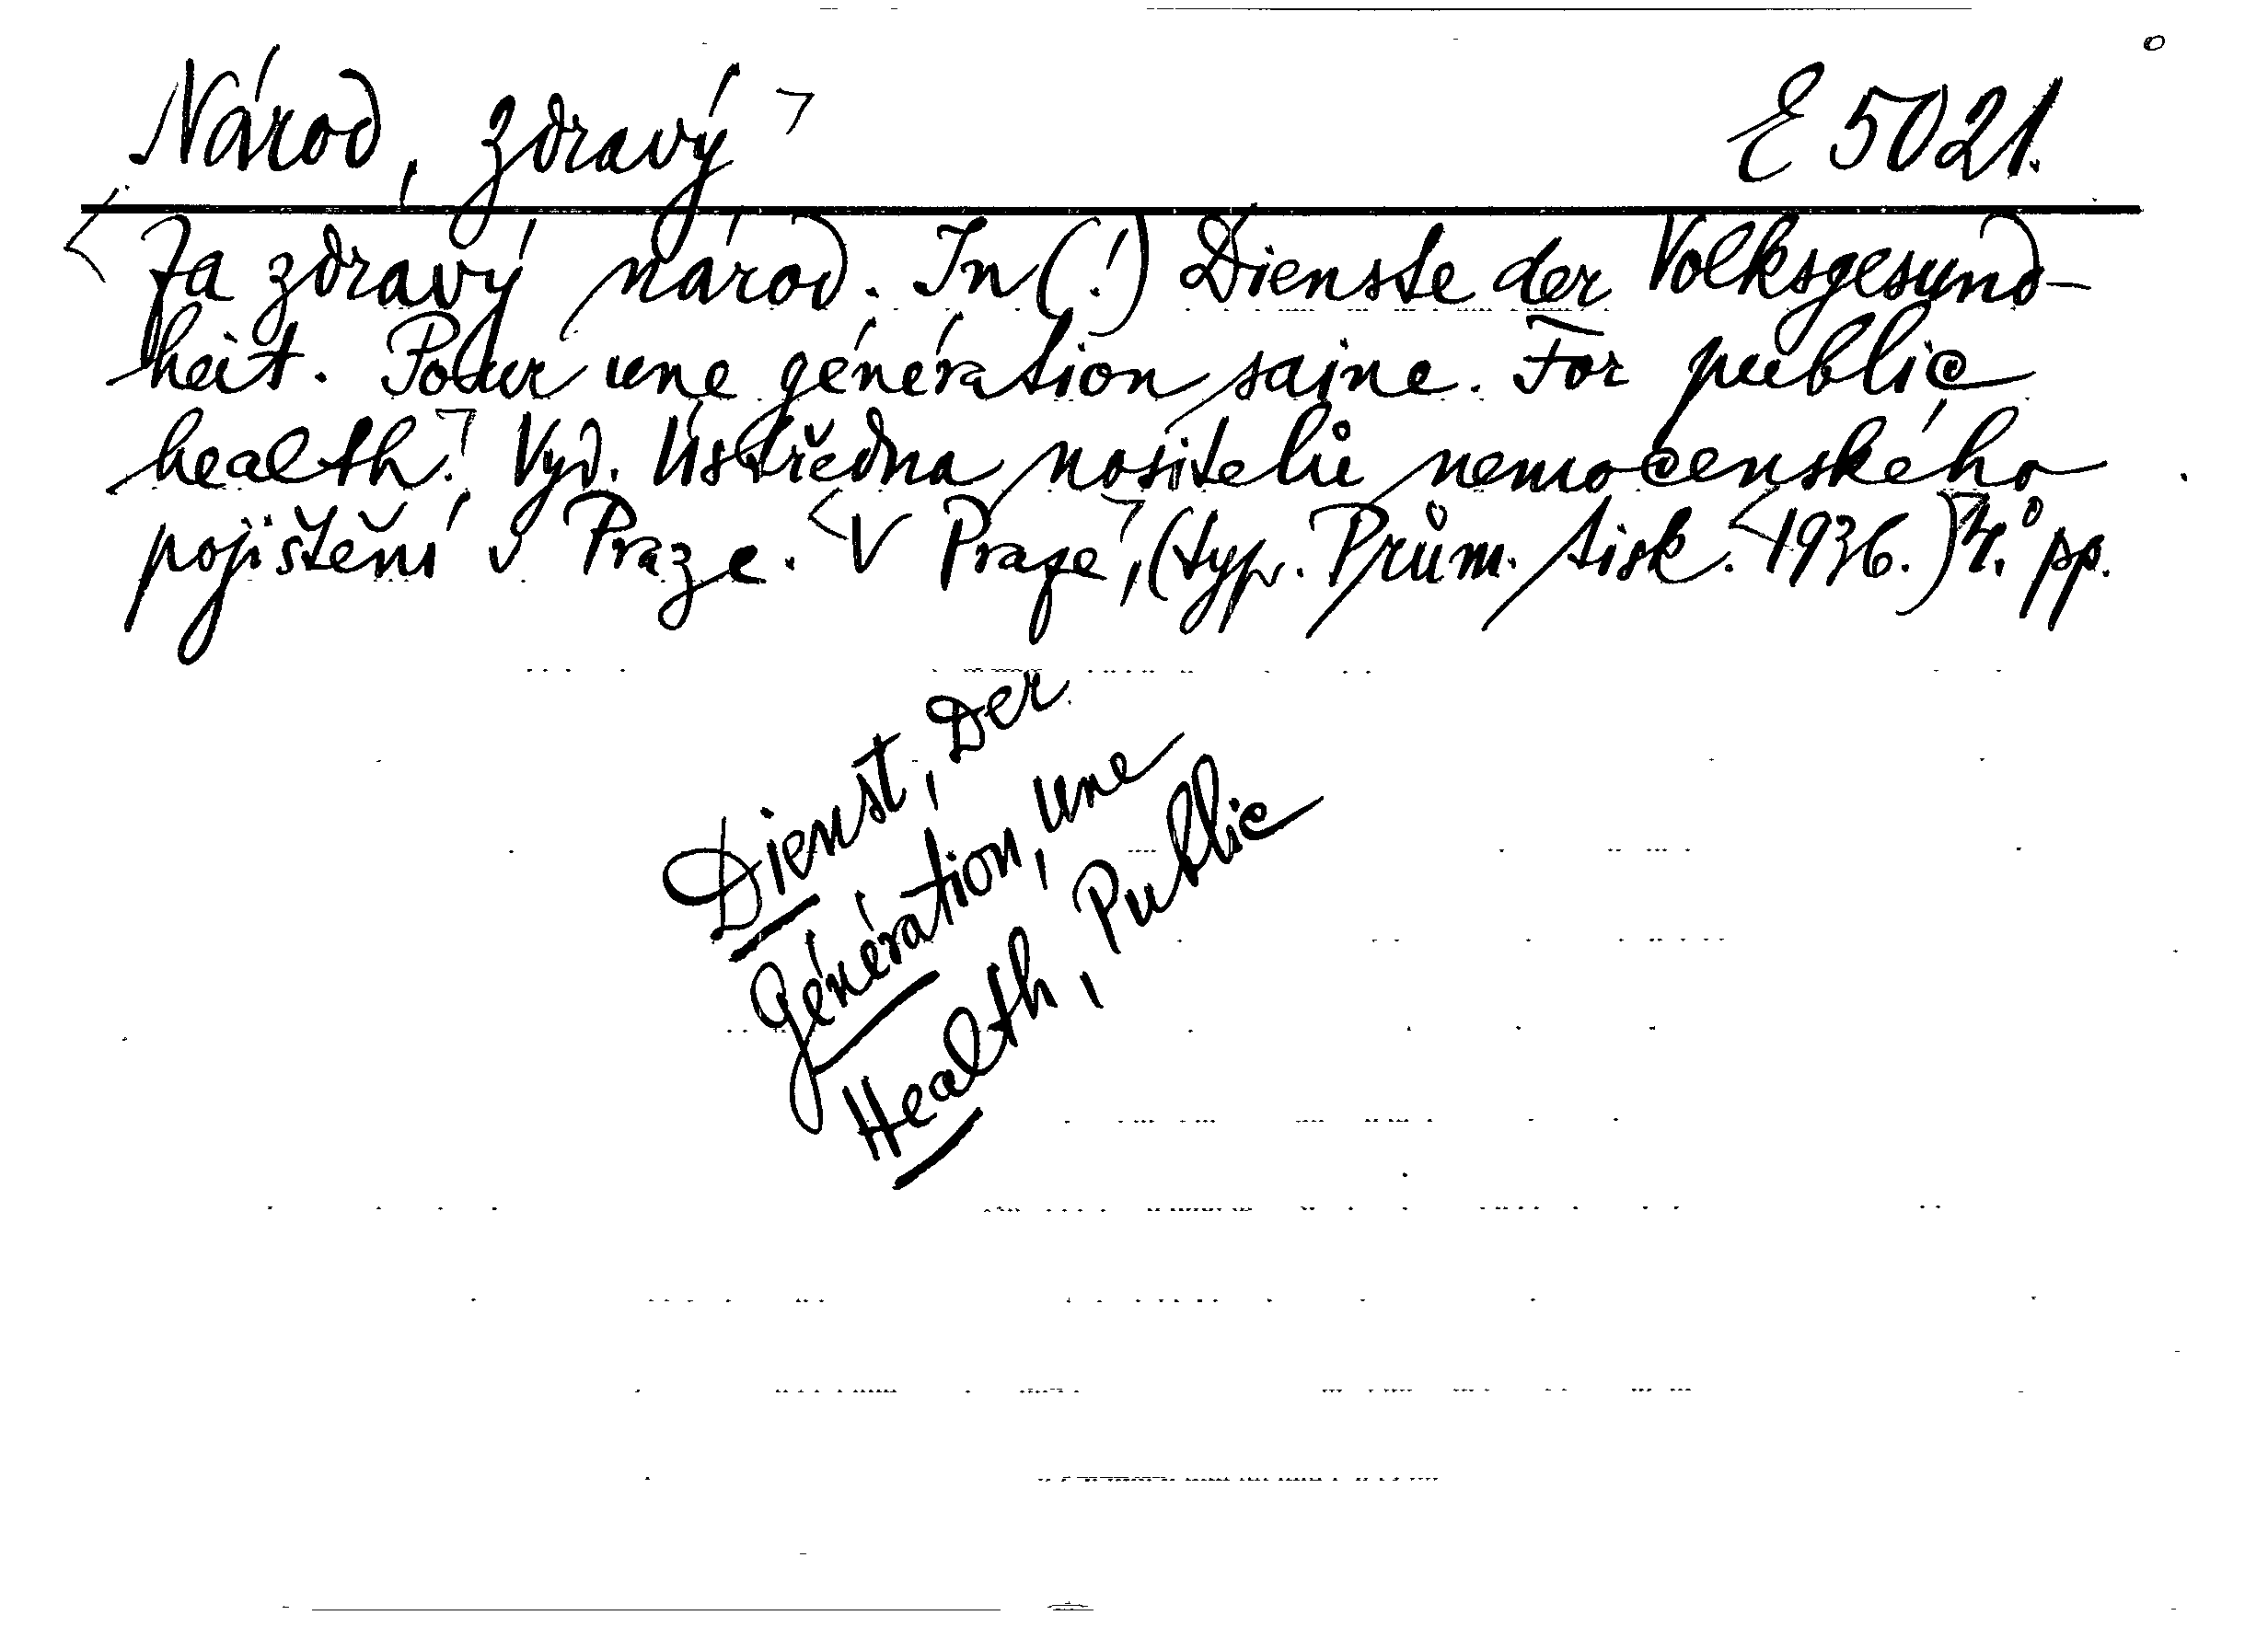 Národ, zdravý ⌝
E 5021.
< Za zdravý národ. In (!) Dienste der Volksgesund-
heit. Pour une génération saine. For public
health.⌝ Vyd. Ústředna nositelů nemocenského
pojištění v Praze. <V Praze⌝, (typ. Prům. tisk. <1936.)⌝ 4.° pp.
Dienst, Der
Génération, Une
Health, Public